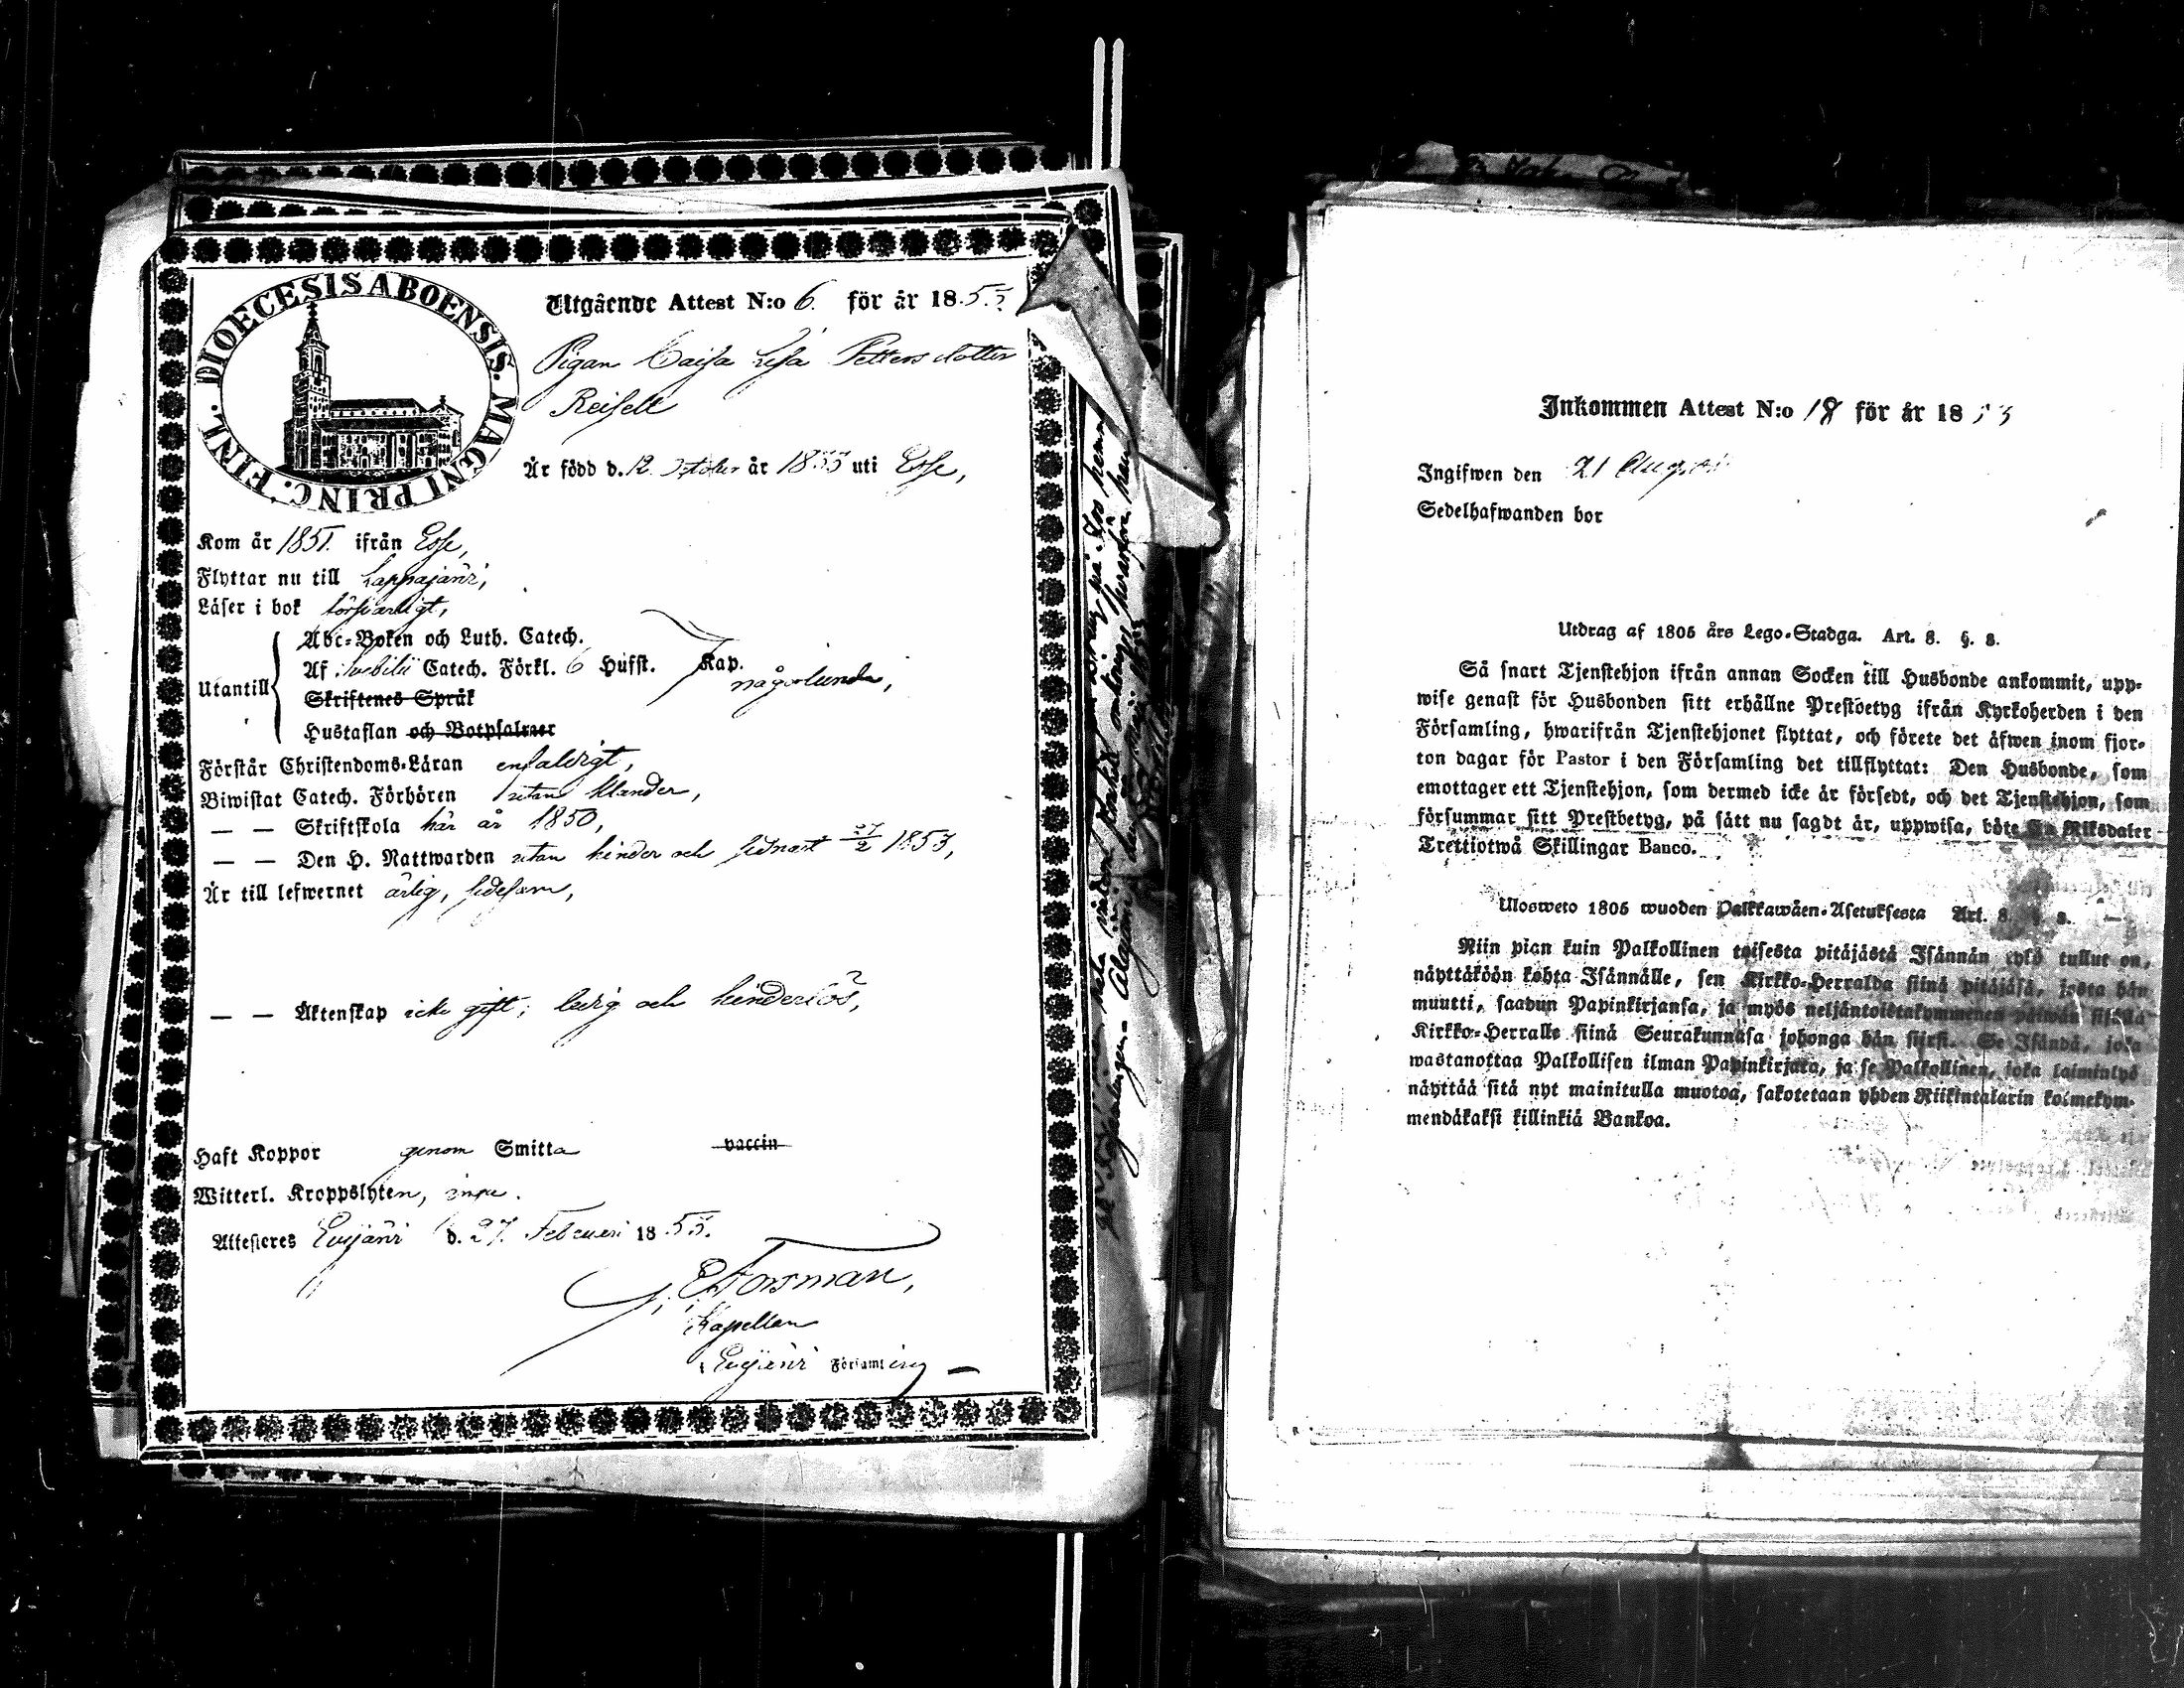 DIOECESIS ABOENSIS. MAGNI PRINC. FINL.
Utgående Attest N:o 6. för år 1853.
Pigan Caisa Lisa Pettersdotter
Reisell
Är född d. 12 October år 1833 uti Esse,
Kom år 1851. ifrån Esse,
Flyttar nu till Lappajärvi,
Läser i bok försvarligt,
Utantill
Abc-Boken och Luth. Catech.
Af Svebilii Catech. Förkl. 6 Hufst. Kap.
någorlunda,
Skriftenes Språk
Hustaflan och Botpsalmer
Förstår Christendoms-Läran enfaldigt,
Biwistat Catech. Förhören utan klander,
— — Skriftskola här år 1850,
— — Den H. Nattwarden utan hinder och sednast 27/2 1853,
Är till lefwernet ärlig, sedesam,
— — Äktenskap icke gift; ledig och hinderlös,
Haft Koppor genom Smitta vaccin
Witterl. Kroppslyten, inga.
Attesteres Evijärvi d. 27. Februari 1853.
E Forsman,
Kapellan
i Evijärvi Församling
Inkommen Attest N:o 18 för år 1853
Ingifwen den 21 Augusti
Sedelhafwanden bor
Utdrag af 1805 års Lego-Stadga. Art. 8. §. 8.
Så snart Tjenstehjon ifrån annan Socken till Husbonde ankommit, upp-
wise genast för Husbonden sitt erhållne Prestbetyg ifrån Kyrkoherden i den
Församling, hwarifrån Tjenstehjonet flyttat, och förete det äfwen inom fjor-
ton dagar för Pastor i den Församling det tillflyttat: Den Husbonde, som
emottager ett Tjenstehjon, som dermed icke är försedt, och det Tjenstehjon, som
försummar sitt Prestbetyg, på sätt nu sagdt är, uppwisa, böte Riksdaler
Trettiotwå Skillingar Banco.
Ulosweto 1805 wuoden Palkkawäen-Asetuksesta Art. 8. §. 8.
Niin pian kuin Palkollinen toisesta pitäjästä Isännän tykö tullut on,
näyttäköön kohta Isännälle, sen Kirkko-Herralda siinä pitäjäsä, josta hän
muutti, saadun Papinkirjansa, ja myös neljäntoistakymmenen päiwän sisällä
Kirkko-Herralle siinä Seurakunnasa johonga hän siirsi. Se Isändä, joka
wastanottaa Palkollisen ilman Papinkirjata, ja se Palkollinen, joka laiminlyö
näyttää sitä nyt mainitulla muotoa, sakotetaan yhden Riikintalarin kolmekym-
mendäkaksi killinkiä Bankoa.